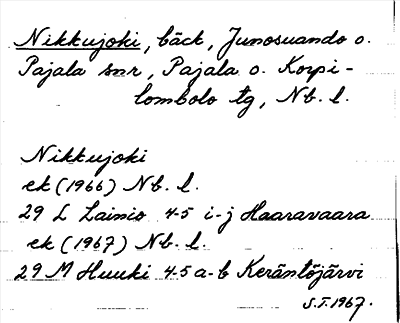 Nikkujoki, bäck, Junosuando o.
Pajala snr, Pajala o. Korpi-
lombolo tg, Nb. l.
Nikkujoki
ek (1966) Nb. l.
29 L Lainio 4-5 i-j Haaravaara
ek (1967) Nb. l.
29 M Huuki 4-5 a-b Keräntöjärvi
S.T. 1967.